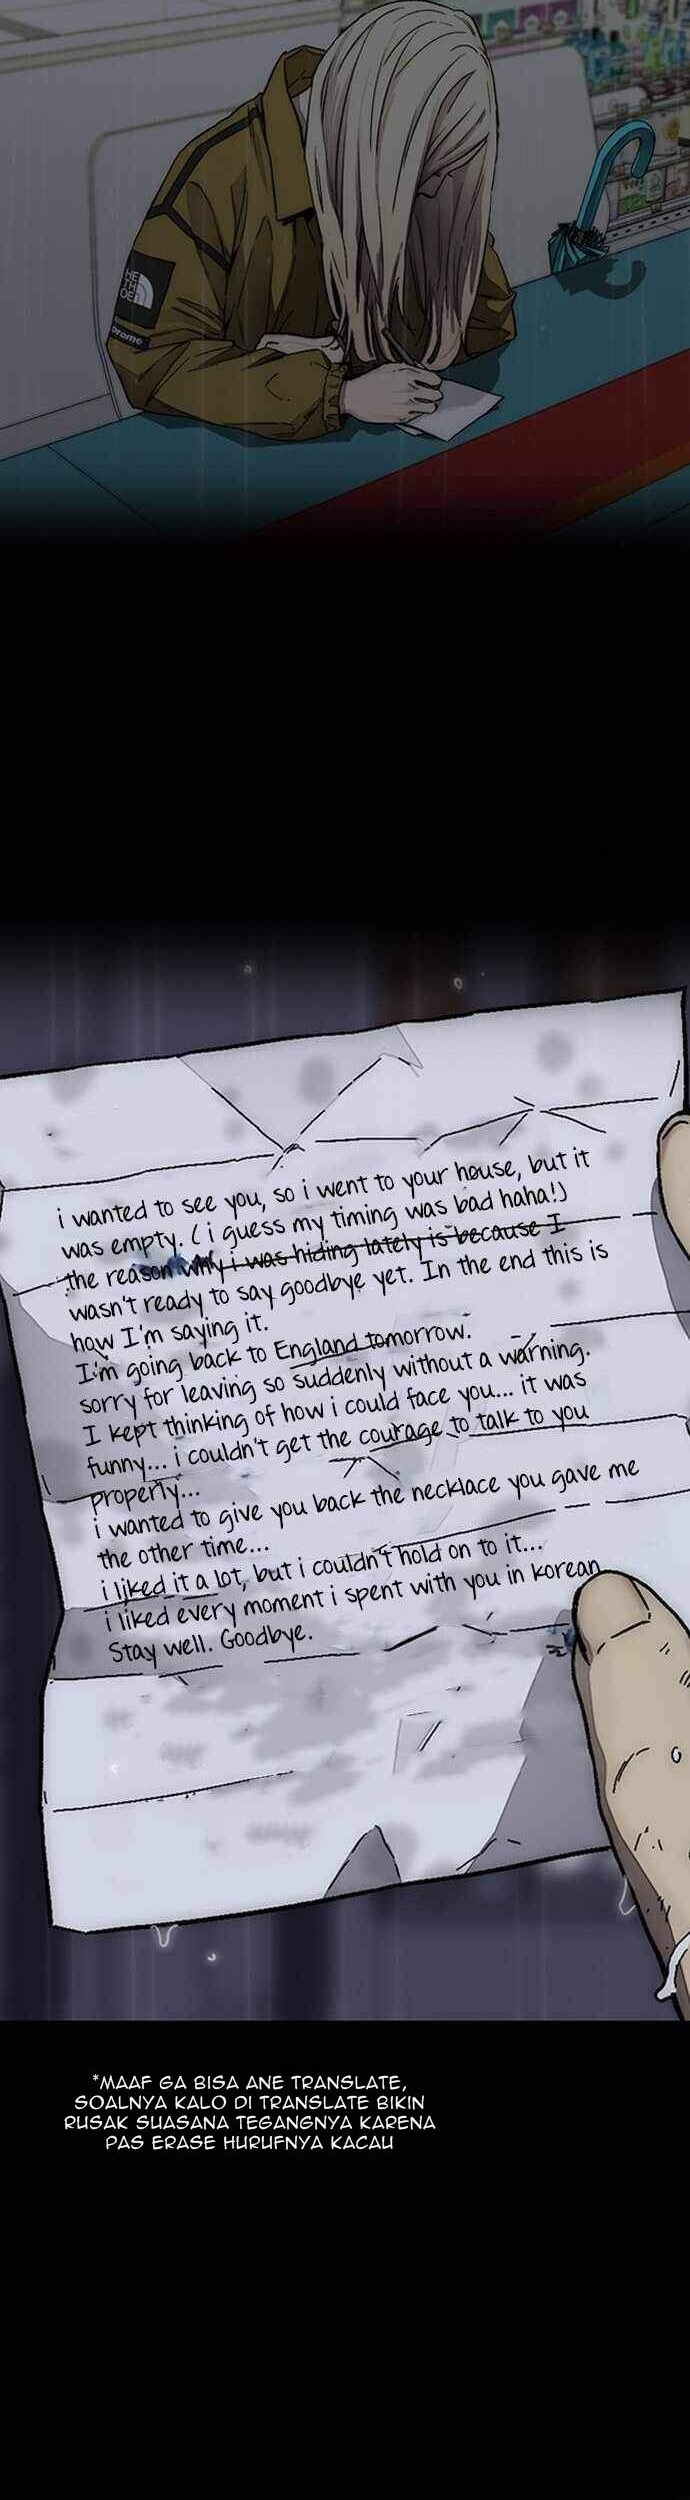 HE
TH
OE
preme
i wanted to see you, so i went to your house, but it
was empty. ( i guess my timing was bad haha!)
the reason why i was hiding lately is because I
wasn't ready to say goodbye yet. In the end this is
how I'm saying it.
I'm going back to England tomorrow.
sorry for leaving so suddenly without a warning.
I kept thinking of how i could face you... it was
funny... i couldn't get the courage to talk to you
properly...
i wanted to give you back the necklace you gave me
the other time...
i liked it a lot, but i couldn't hold on to it...
i liked every moment i spent with you in korean
Stay well. Goodbye.
*MAAF GA BISA ANE TRANSLATE,
SOALNYA KALO DI TRANSLATE BIKIN
RUSAK SUASANA TEGANGNYA KARENA
PAS ERASE HURUFNYA KACAU